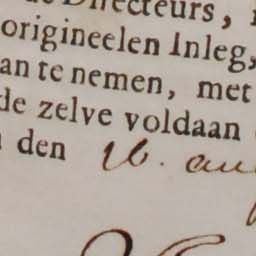 Directeurs,
origineelen Inleg,
an te nemen, met
de zelve voldaan
den 16. au